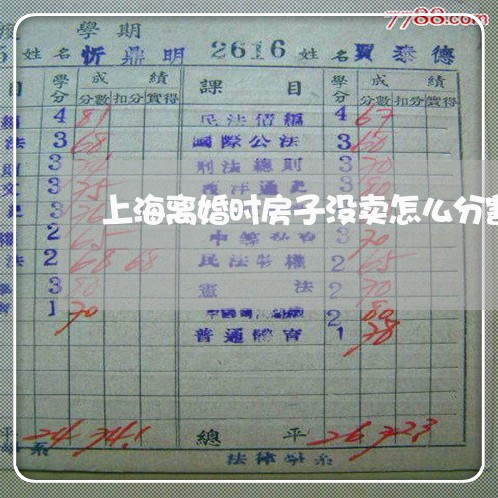 7788.com
學期
姓名 忻鼎明 2616 姓名 賈泰德
目 學分 成績 課目 學分 成績
分數 扣分 實得 分數 扣分 實得
4 81 民法債編 4 67
法 3 68 國際公法 3 60
3 刑法總則 3 70
3 75 西洋通史 3
上海离婚时房子没卖怎么分割
2 65 3 70
法 2 68 68 民法物權 2 65
3 80 憲法 2 70
1 70 2 80
普通體育 1 78
平 24 74.1 總平 26 72.3
系 法律學系